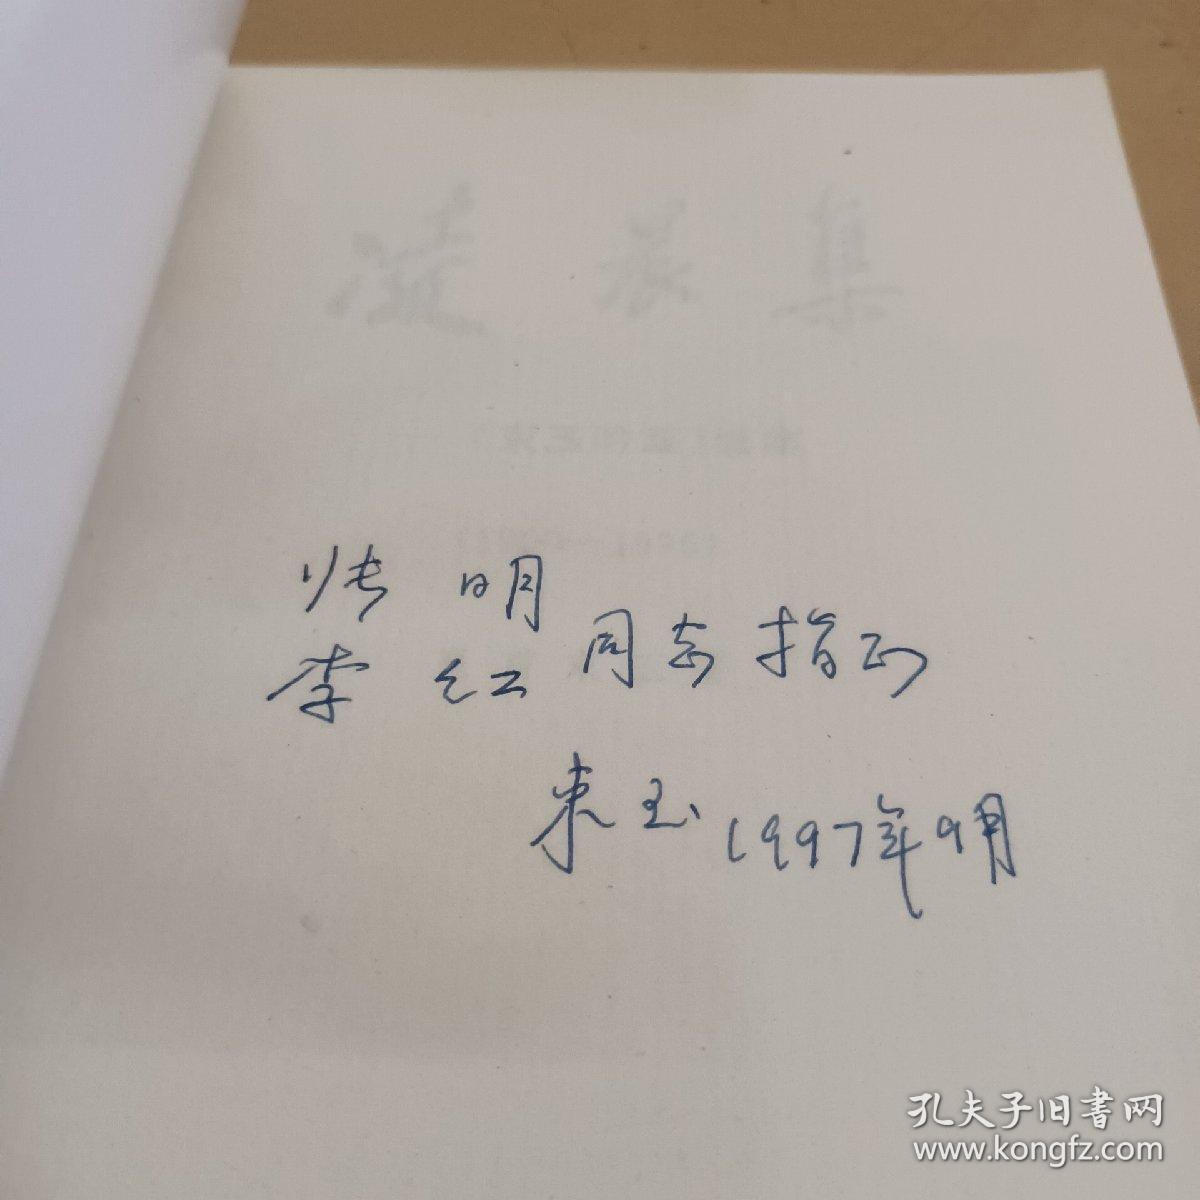 集
张 明
李 红 同志指正
玉 1997年9月
孔夫子旧书网
www.kongfz.com